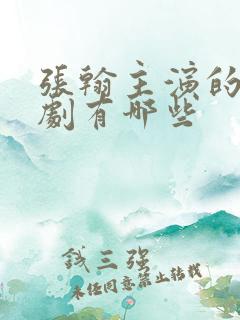 張翰主演的
劇有哪些
錢三强
未经同意禁止转载